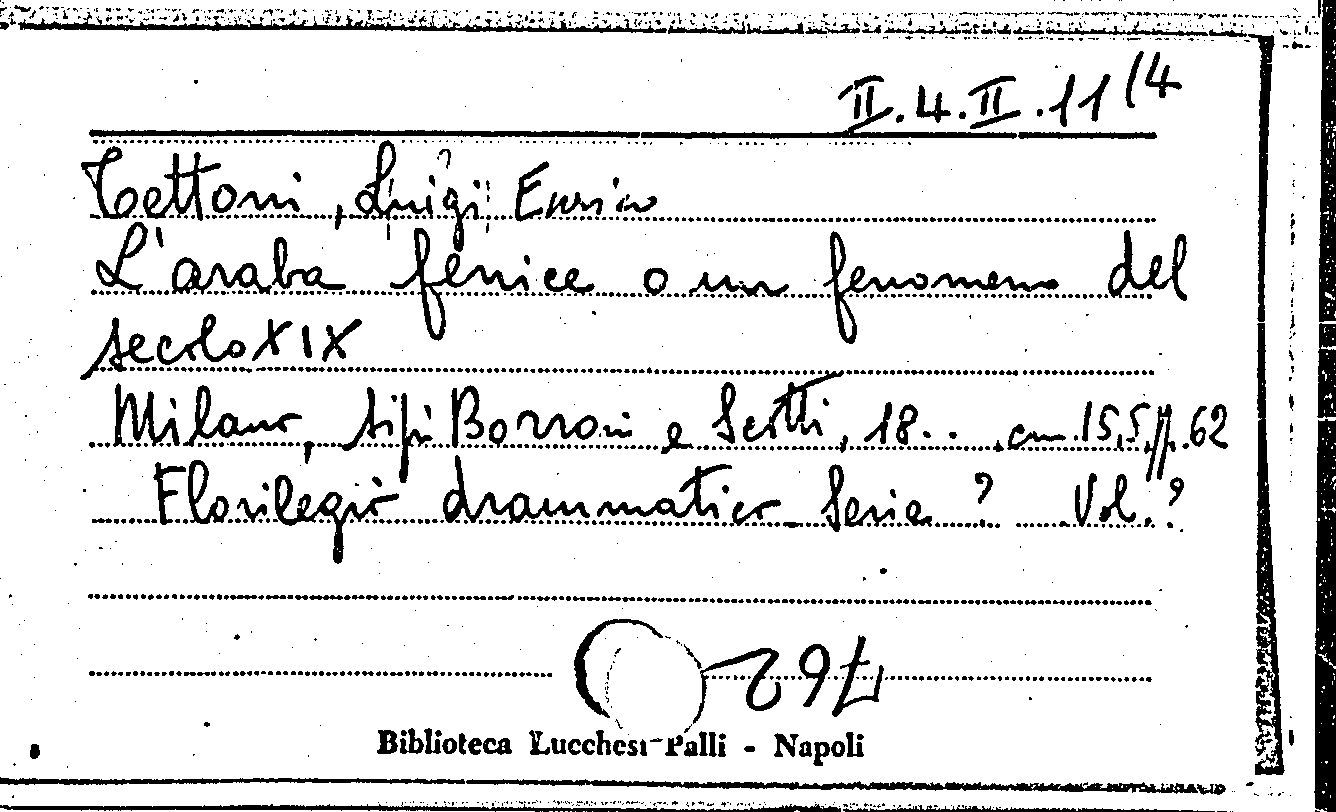 II.4.II.11(4
Tettoni, Luigi Enrico
L'araba fenice o un fenomeno del
secolo XIX
Milano, tipi Borroni e Scotti, 18.. cm.15,5,pp.62
Florilegio drammatico Serie ? Vol. ?
Biblioteca Lucchesi-Palli - Napoli